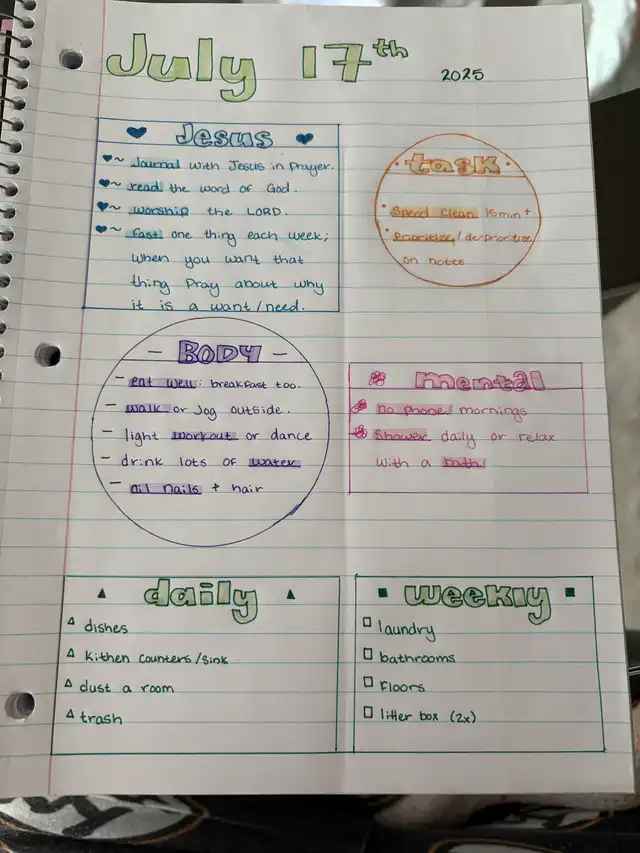 July 17th 2025
Jesus
~ Journal with Jesus in Prayer.
~ read the word of God.
~ worship the LORD.
~ Fast one thing each week;
when you want that
thing Pray about why
it is a want/need.
task
• Speed clean 15min+
• Prioritize/de-prioritize
on notes
- BODY -
- eat well: breakfast too.
- walk or Jog outside.
- light workout or dance
- drink lots of water
- oil nails + hair
mental
no phone mornings
Shower daily or relax
with a bath
daily
dishes
kithen counters/sink
dust a room
trash
weekly
laundry
bathrooms
Floors
litter box (2x)